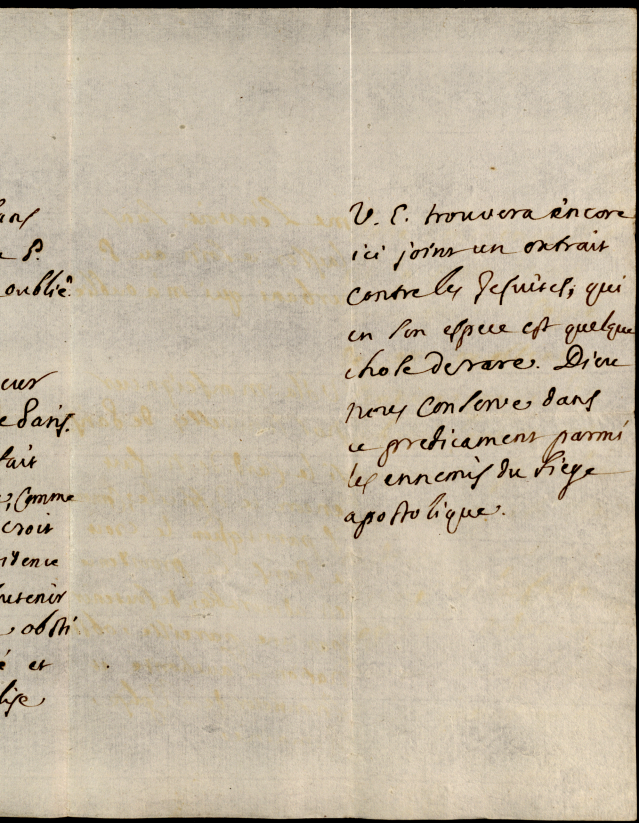 ans
e P.
oublié.
eur
e Paris.
fait
e, comme
croit
sidence
outenir
e obsti
é et
lise
V. E. trouvera encore
ici joint un extrait
contre les Jesuites, qui
en son espece est quelque
chose de rare. Dieu
nous conserve dans
ce predicament parmi
les ennemis du siege
apostolique.